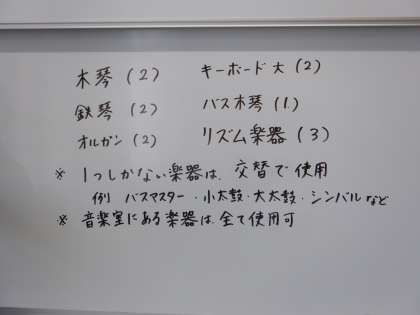 木琴(2) キーボード大(2)
鉄琴(2) バス木琴(1)
オルガン(2) リズム楽器(3)
※ 1つしかない楽器は、交替で使用
例 バスマスター・小太鼓・大太鼓・シンバルなど
※ 音楽室にある楽器は、全て使用可